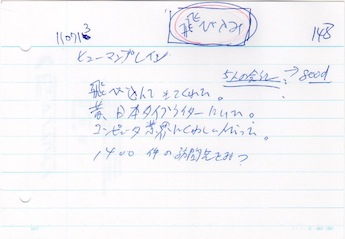 110713
飛び込み
143
ヒューマンブレイン
5人の会社 → good
飛び込んで来てくれた。
昔、日本タイプライターにいた。
コンピュータ業界にくわしい人だった。
1400件の訪問先をもつ